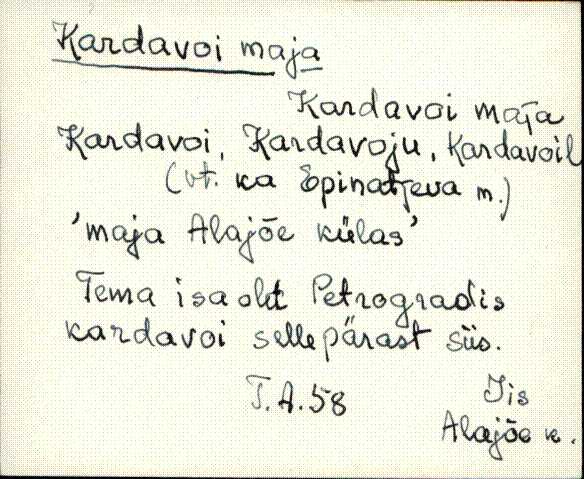 Kardavoi maja
Kardavoi maja
Kardavoi, Kardavoju, Kardavoil
(vt. ka Epinatjeva m.)
'maja Alajõe külas'
Tema isa olit Petrogradis
kardavoi sellepärast siis.
T.A.58 Iis
Alajõe k.